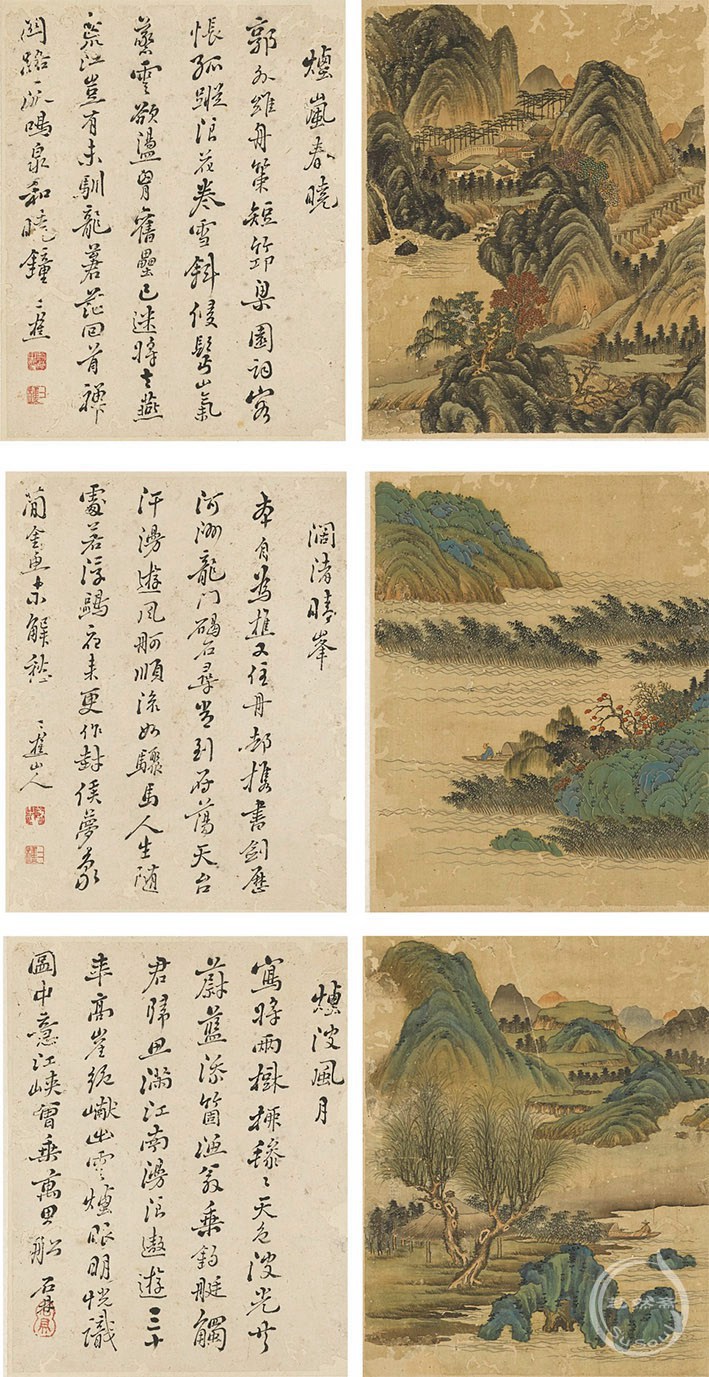 烟嵐春曉
郭外維舟策短筇梁園詞客
悵孤蹤浪花卷雪斜侵髩山氣
蒸雲欲盪胷舊壘已迷將去燕
荒江豈有未馴龍莫茫回首禪
關路一派鳴泉和曉鐘 二樵
濶渚晴峯
本自為樵又住舟却携書劍歷
河洲龍門碣石尋常到府蕩天台
汗漫遊風舸順流如驟馬人生隨
處若浮鷗君来更作封侯夢象
簡金魚未解愁 二樵山人
烟波風月
寫將兩樹柳毿毿天色波光共
蔚藍添箇漁翁乘釣艇觸
君歸思滿江南漫浪遨遊三十
年高崖絕巘出雲烟眼明恍識
圖中意江峽曾乘萬里船 石鼎